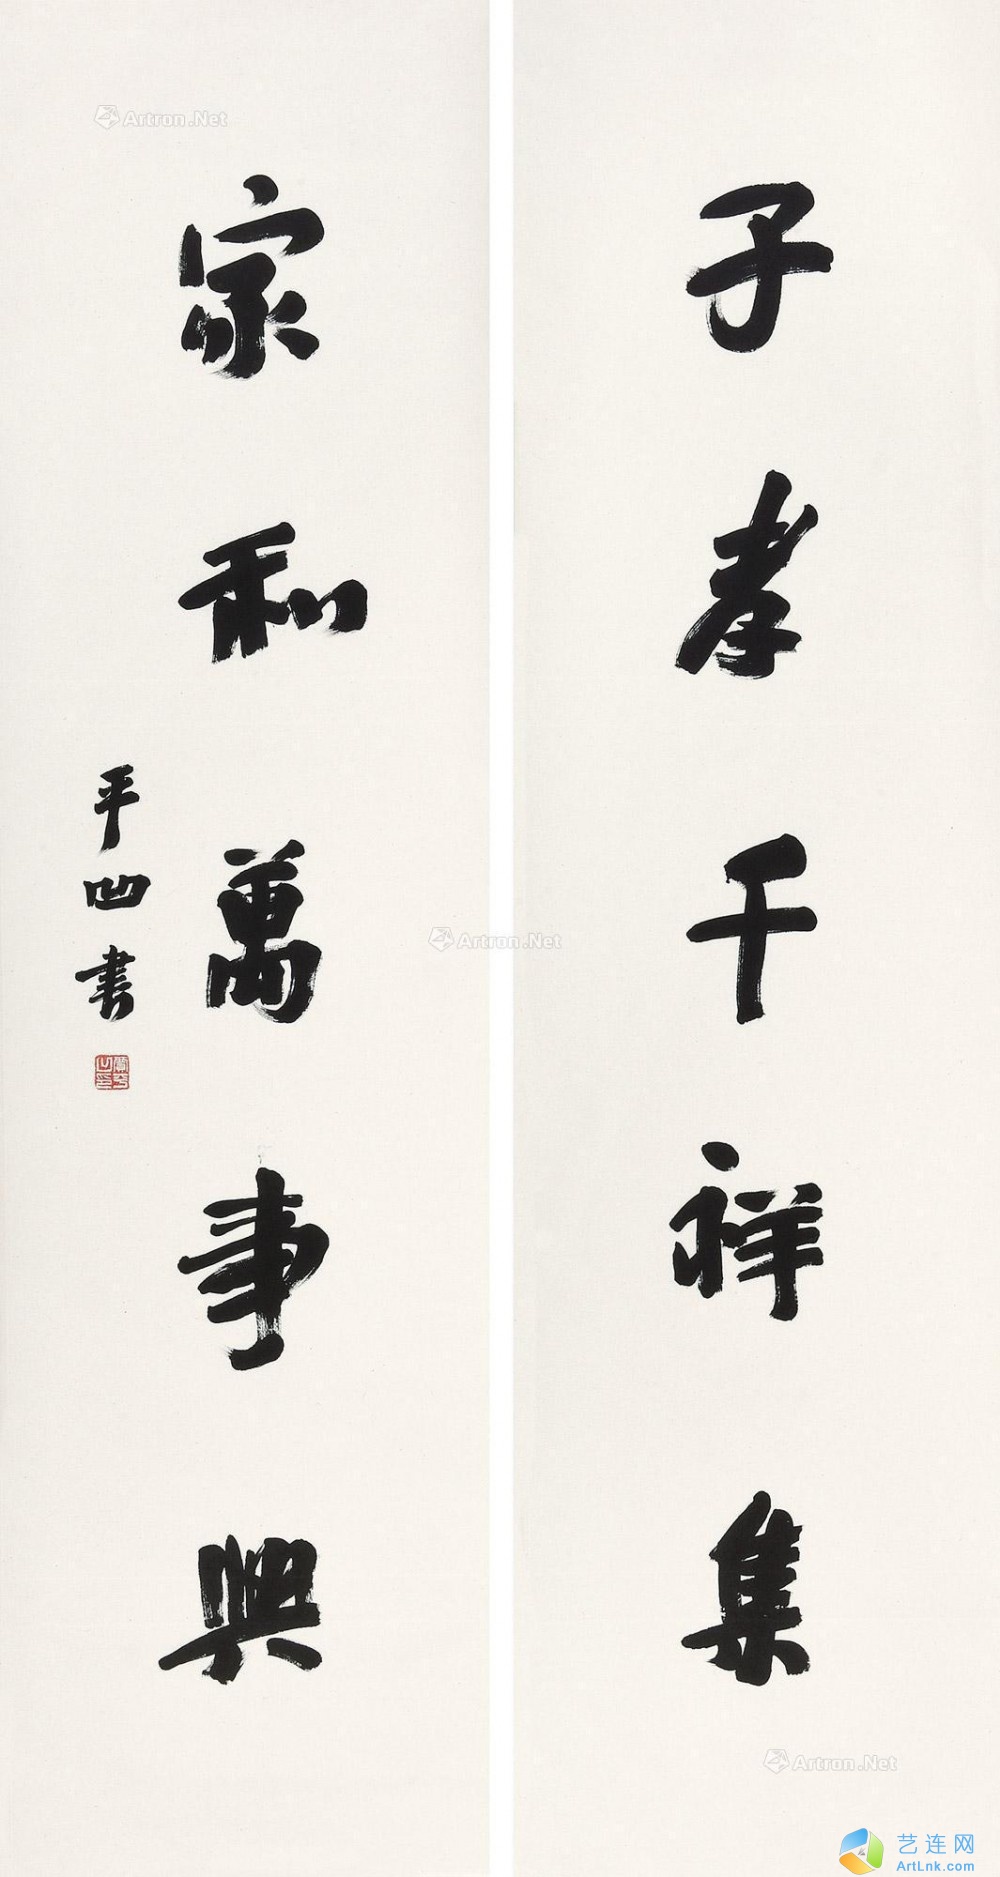 子孝千祥集
家和萬事興
平凹書
賈平凹印
Artron.Net
Artron.Net
Artron.Net
艺连网
ArtLnk.com